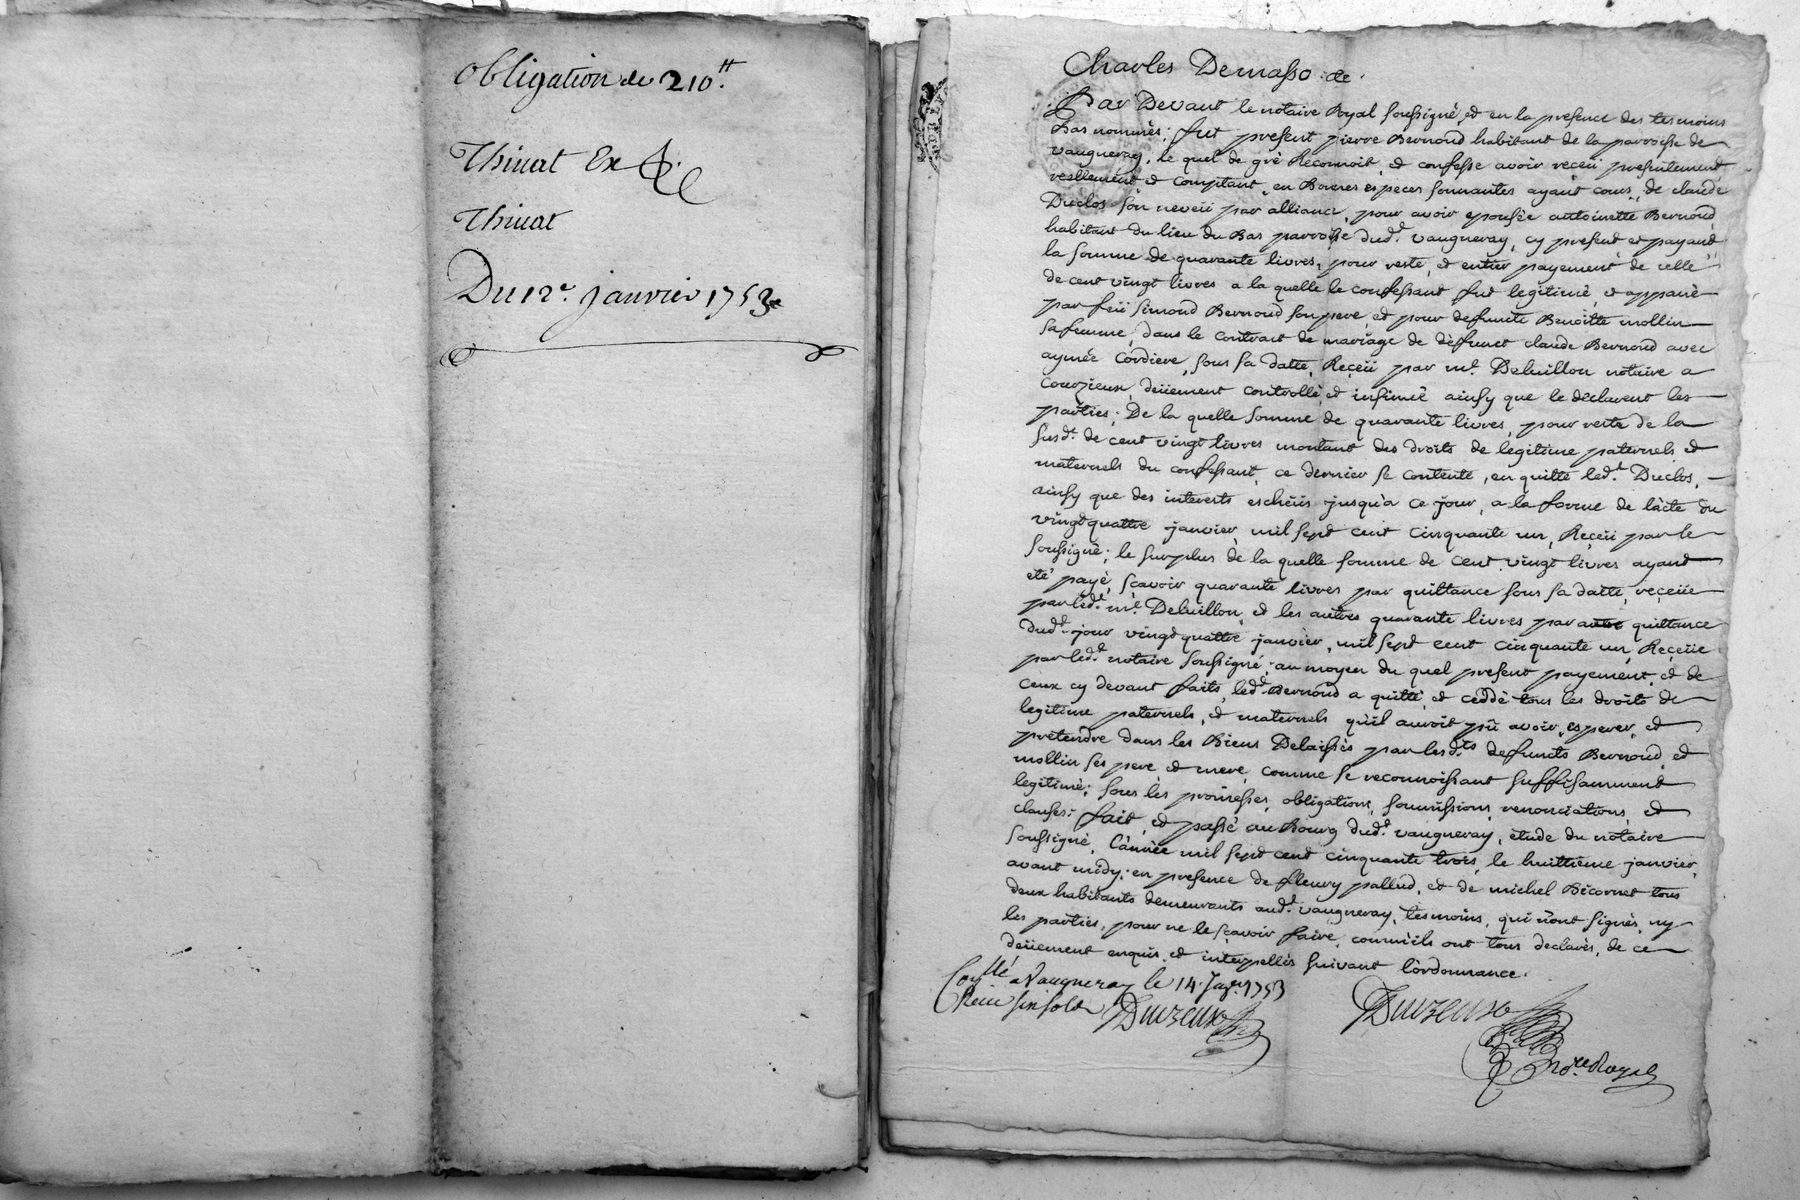 Obligation de 210.ᵗᵗ
Thiuat Ex
Thiuat
Du 12.ᵉ janvier 1753
Charles Demasso de
Par Devant le notaire Royal soussigné, et en la presence des tesmoins
Bas nommés: fut present pierre Bernoud habitant de la parroisse de
vaugneray, le quel de gré Reconnoit, et confesse avoir reçeü presentement
reellement et comptant, en Bonnes especes sonnantes ayant cours, de claude
Duclos son neveü par alliance, pour avoir epousée antoinette Bernoud
habitant du lieu du Bas parroisse dud.ᵗ vaugneray, cy present et payant
la somme de quarante livres, pour reste, et entier payement de celle
de cent vingt livres a la quelle le confessant fut legitimé, et appané
par feü simond Bernoud son pere, et pour defunte Benoitte mollin
sa femme, dans le contract de mariage de defunct claude Bernoud avec
aymée Cordiere, sous sa datte, Reçeü par m.ᵉ Deluillon notaire a
Courzieux, deüement controllé, et insinué ainsy que le declarent les
parties; De la quelle somme de quarante livres, pour reste de la
susd.ᵗ de cent vingt livres montant des droits de legitime paternels et
maternels du confessant, ce dernier se contente, en quitte led.ᵗ Duclos,
ainsy que des interests escheüs jusqu'a ce jour, a la forme de l'acte du
vingt quattre janvier, mil sept cent cinquante un, Reçeü par le
soussigné; le surplus de la quelle somme de cent vingt livres ayant
eté payé, sçavoir quarante livres par quittance sous sa datte, reçeüe
par led.ᵗ m.ᵉ Deluillon, et les autres quarante livres par autre quittance
dud.ᵗ jour vingt quattre janvier, mil sept cent cinquante un, Reçeüe
par led.ᵗ notaire soussigné; au moyen du quel present payement, et de
ceux cy devant faits, led.ᵗ Bernoud a quitté, et ceddé tous les droits de
legitime paternels, et maternels qu'il auroit pû avoir, esperer, et
pretendre dans les Biens Delaissés par lesd.ᵗˢ defunts Bernoud, et
mollin ses pere et mere, comme se reconnoissant suffisamment
legitimé; sous les promesses, obligations, soumissions, renonciations, et
clauses: fait, et passé au Bourg dud.ᵗ vaugneray, etude du notaire
soussigné, L'année mil sept cent cinquante trois, le huittieme janvier,
avant midy; en presence de fleury pallud, et de michel Bicornet tous
deux habitants demeurants aud.ᵗ vaugneray, tesmoins, qui n'ont signés, ny
les parties, pour ne le sçavoir faire, comm'ils ont tous declarés, de ce
deüement enquis, et interpellés suivant l'ordonnance.
Con.ᵗˡˡᵉ́ a Vaugneray le 14. Janv. 1753
Reçu six sols
Durzeux
Durzeux
No.ʳᵉ Royal